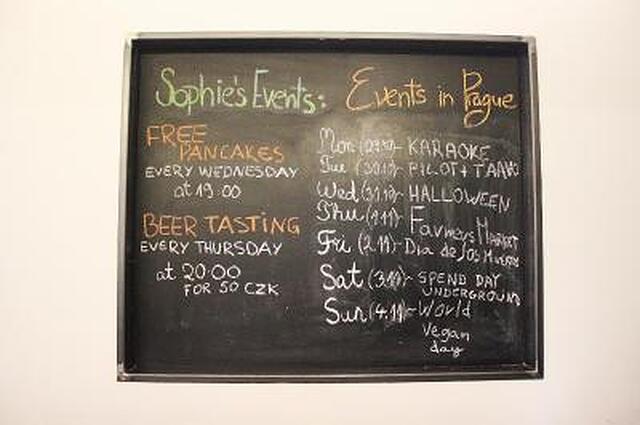 Sophie's Events:
FREE
PANCAKES
EVERY WEDNESDAY
at 19:00
BEER TASTING
EVERY THURSDAY
at 20:00
FOR 50 CZK
Events in Prague
Mon (29.10)- KARAOKE
Tue (30.10)- PILOT+
Wed (31.10)- HALLOWEEN
Thu (1.11)- Farmers Market
Fri (2.11)- Dia de los Muertos
Sat (3.11)- SPEND DAY
UNDERGROUND
Sun (4.11)- World
Vegan
day